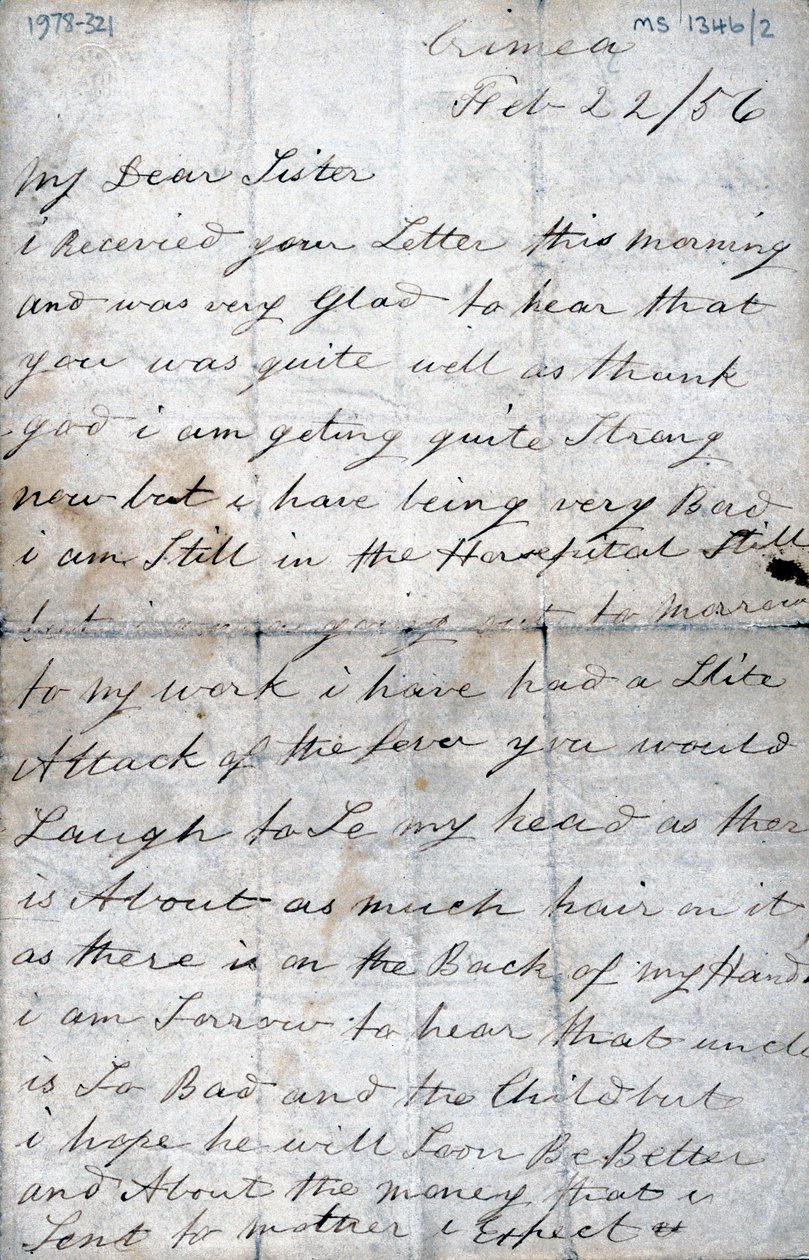 1978-321
MS 1346/2
Crimea
Feb 22/56
My Dear Sister
i Recevied your Letter this morning
and was very Glad to hear that
you was quite well as thank
god i am geting quite Strong
now but i have being very Bad
i am Still in the Horsepital Still
but i am going out to morrow
to my work i have had a Slite
Attack of the fever you would
Laugh to Se my head as ther
is About as much hair on it
as there is on the Back of my Hand
i am Sorrow to hear that uncle
is So Bad and the Child but
i hope he will Soon Be Better
and About the money that i
Sent to mother i Expect